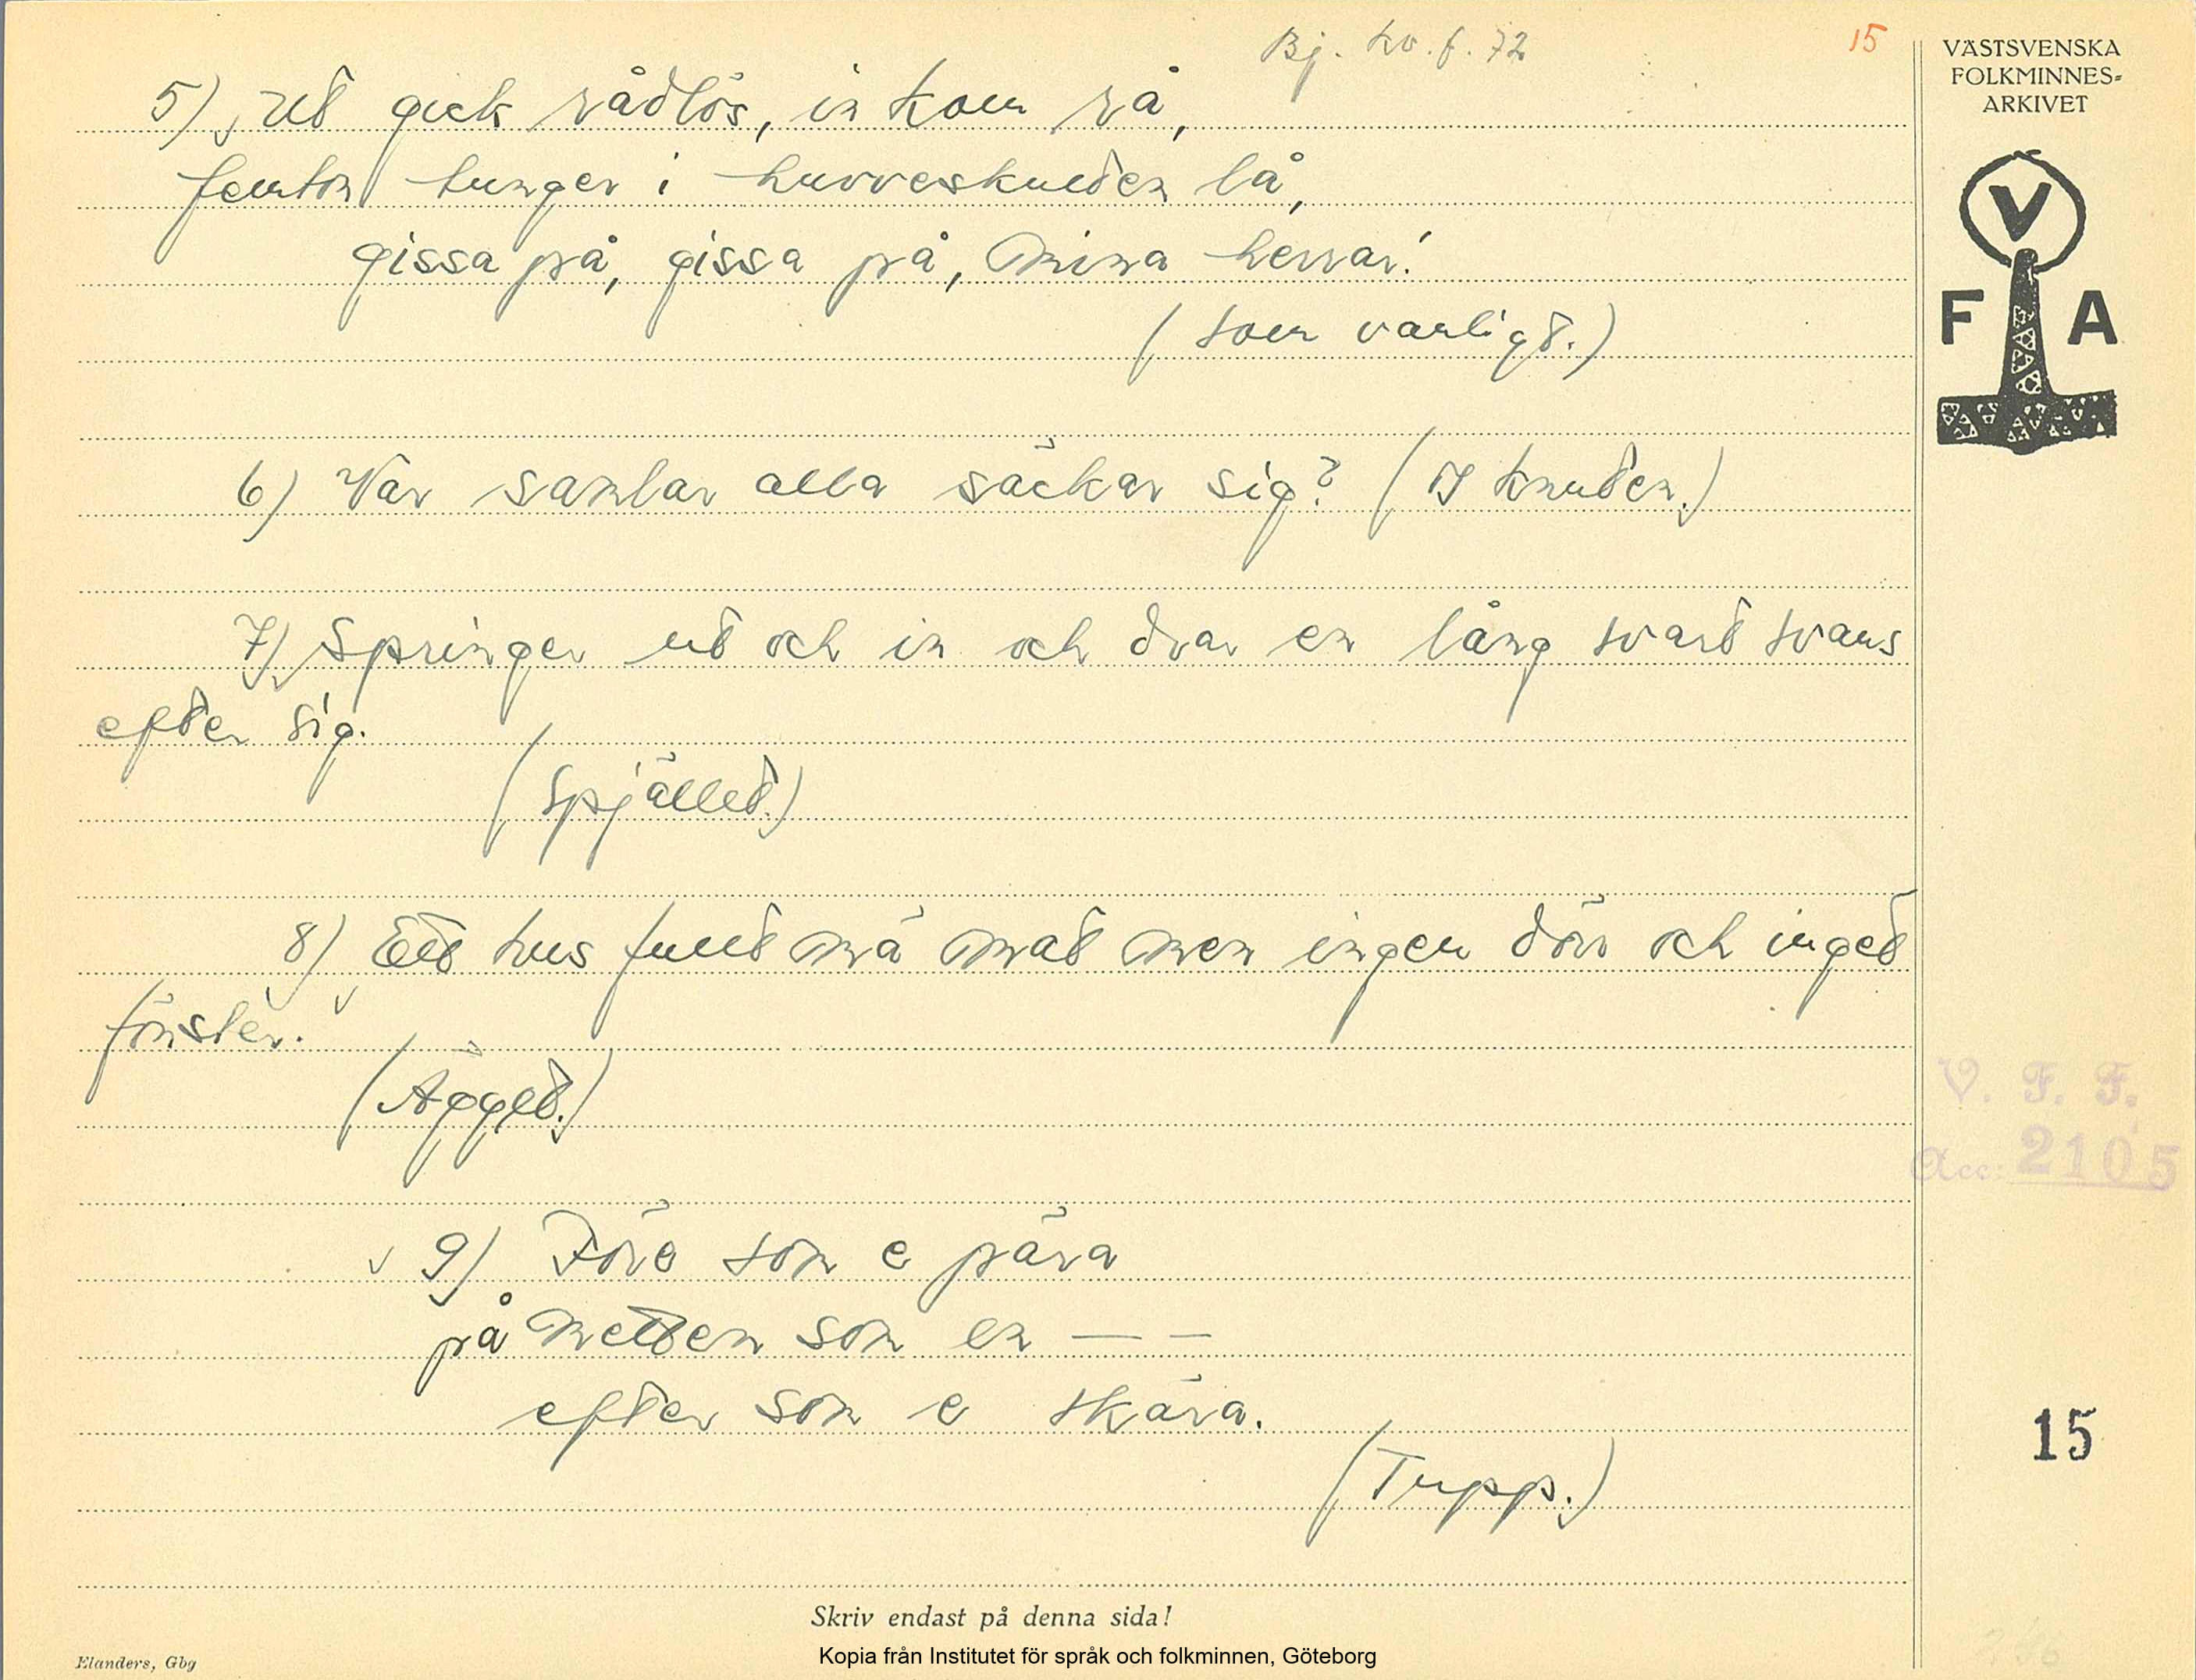 Bj. kv. f. 72
15
VÄSTSVENSKA
FOLKMINNES-
ARKIVET
V
F A
5) Ut gick rådlös, in kom rå,
femton tunger i huvveskueden lå,
gissa på, gissa på, mina herrar!
(som vanligt.)
6) Var samlar alla säckar sig? (I knuten.)
7) Springer ut och in och drar en lång svart svans
efter sig.
(Spjället.)
8) Ett hus fullt mä mat men ingen dörr och inget
fönster.
(Ägget.)
V. F. F.
Acc: 2105
9) Före som e pära
på metten som en — —
efter som e skära.
(Tupp.)
15
Skriv endast på denna sida!
Kopia från Institutet för språk och folkminnen, Göteborg
Elanders, Gbg